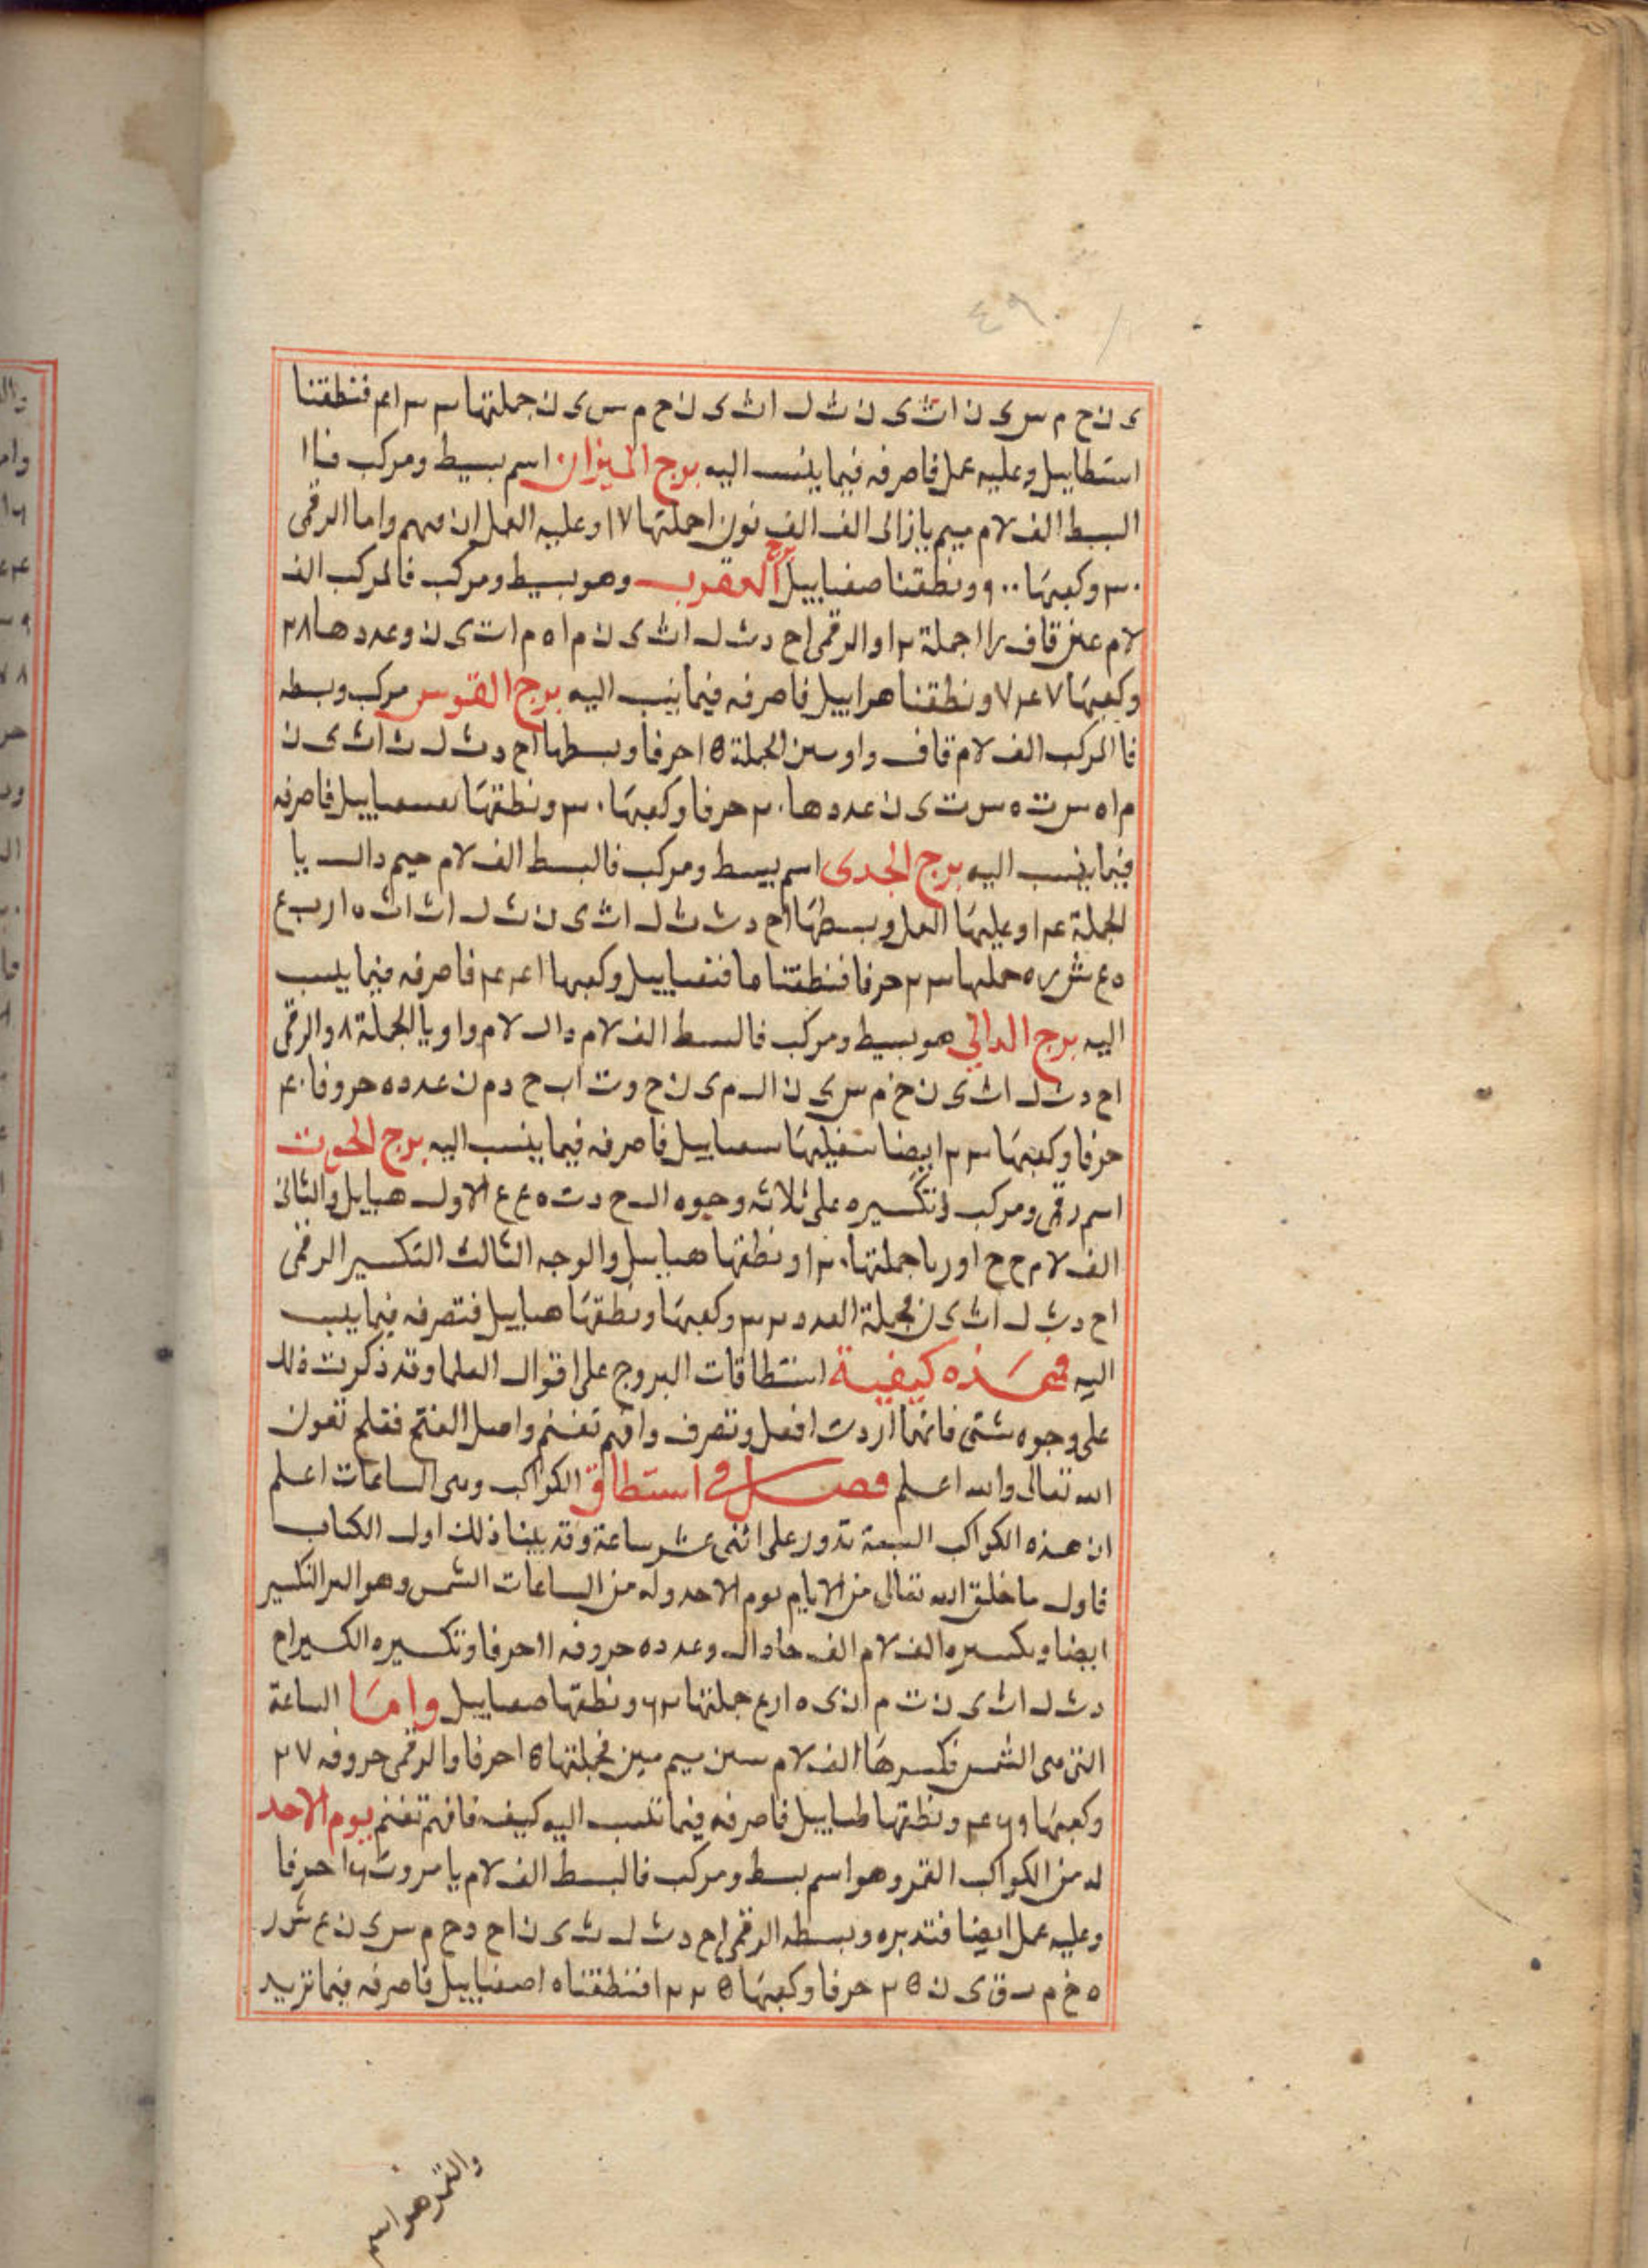 ٤٩
ى ن خ م س ى ن ا ث ى ن ث ل ا ث ى ن خ م س ى ن جملتها ٣٣ ١٤ فنطقنا
استطاييل وعليه عمل فاصرفه فيما ينسب اليه برج الميزان اسم بسيط ومركب فاا
البسط الف لام ميم يا زاى الف الف نون ا جملتها ١٧ وعليه العمل ان فهم واما الرقمى
٣٠ وكعبها ٩٠٠ ونطقنا صفياييل برج العقرب وهو بسيط ومركب فالمركب الف
لام عين قاف را ا جملة ١٢ والرقمى اح د ث ل ا ث ى ن م ا ه م ا ت ى ن وعددها ٢٨
وكعبها ٧٤٧ ونطقنا هراييل فاصرفه فيما ينسب اليه برج القوس مركب وبسطه
فا المركب الف لام قاف واو سين الجملة ١٥ حرفا وبسطها اح د ث ل ث ا ث ى ن
م ا ه س ت ه س ت ى ن عددها ٢٠ حرفا وكعبها ٣٠ ونطقها فاصرفه
فيما ينسب اليه برج الجدى اسم بسيط ومركب فالبسط الف لام جيم دال يا
الجملة ١٤ وعليها العمل وبسطها اح د ث ث ل ا ث ى ن ث ل ا ث ا ث ه ا ر ب ع
ه ع ش ر ه جملتها ٢٣ حرفا فنطقنا ما فنقياييل وكعبها ١٤٤ فاصرفه فيما ينسب
اليه برج الدالي هو بسيط ومركب فالبسط الف لام دال لام واو يا الجملة ٨ والرقمى
اح د ث ل ا ث ى ن خ م س ى ن ال م ى ن ح و ت ا ب ح د م ن عدده حروفا ٤٠
حرفا وكعبها ٢٣ ايضا سفيلها فاصرفه فيما ينسب اليه برج الحوت
اسم رقمى ومركب وتكسيره على ثلاثه وجوه ال ح د ت ه ع ع الاول هبايل والثانى
الف لام ح ح ا و ر يا جملتها ١٢٠ ونطقها هباييل والوجه الثالث التكسير الرقمى
اح د ث ل ا ث ى ن جملة العدد ٢٣ وكعبها ونطقها هباييل فتصرفه فيما ينسب
اليه فهذه كيفية استطاقات البروج على اقوال العلما وقد ذكرت ذلك
على وجوه شتى فانما اردت افعل وتصرف وافهم تغنم واصل الفتح فقلم تعون
الله تعالى والله اعلم فصل في استطاق الكواكب وهى الساعات اعلم
ان هذه الكواكب السبعة تدور على اثنى عشر ساعة وقد بينا ذلك اول الكتاب
فاول ما خلق الله تعالى من الايام يوم الاحد وله من الساعات الشمس وهو التكسير
ايضا وبكسره الف لام الف حا دال وعدده حروفه ١١ حرفا وتكسيره الكسير اح
د ث ل ا ث ى ن ث م ا ن ى ه ا ر ع جملتها ٢٦ ونطقها صعباييل واما الساعة
التى هى الشمس فكسرها الف لام سين ميم سين فجملتها ١٥ حرفا والرقمى حروفه ٢٧
وكعبها ٤٦٩ ونطقها طباييل فاصرفه فيما تنسب اليه كيف فافهم تغنم يوم الاحد
له من الكواكب القمر وهو اسم بسط ومركب فالبسط الف لام يا ١٦ حرفا
وعليه عمل ايضا فتدبره وبسطه الرقمى اح د ث ل ث ى ن اح د خ م س ى ن ع ش ر
ه خ م س ق ى ن ٢٥ حرفا وكعبها ١٢٢٥ فنطقناه اصفياييل فاصرفه فيما تريد
والقمر هو اسم